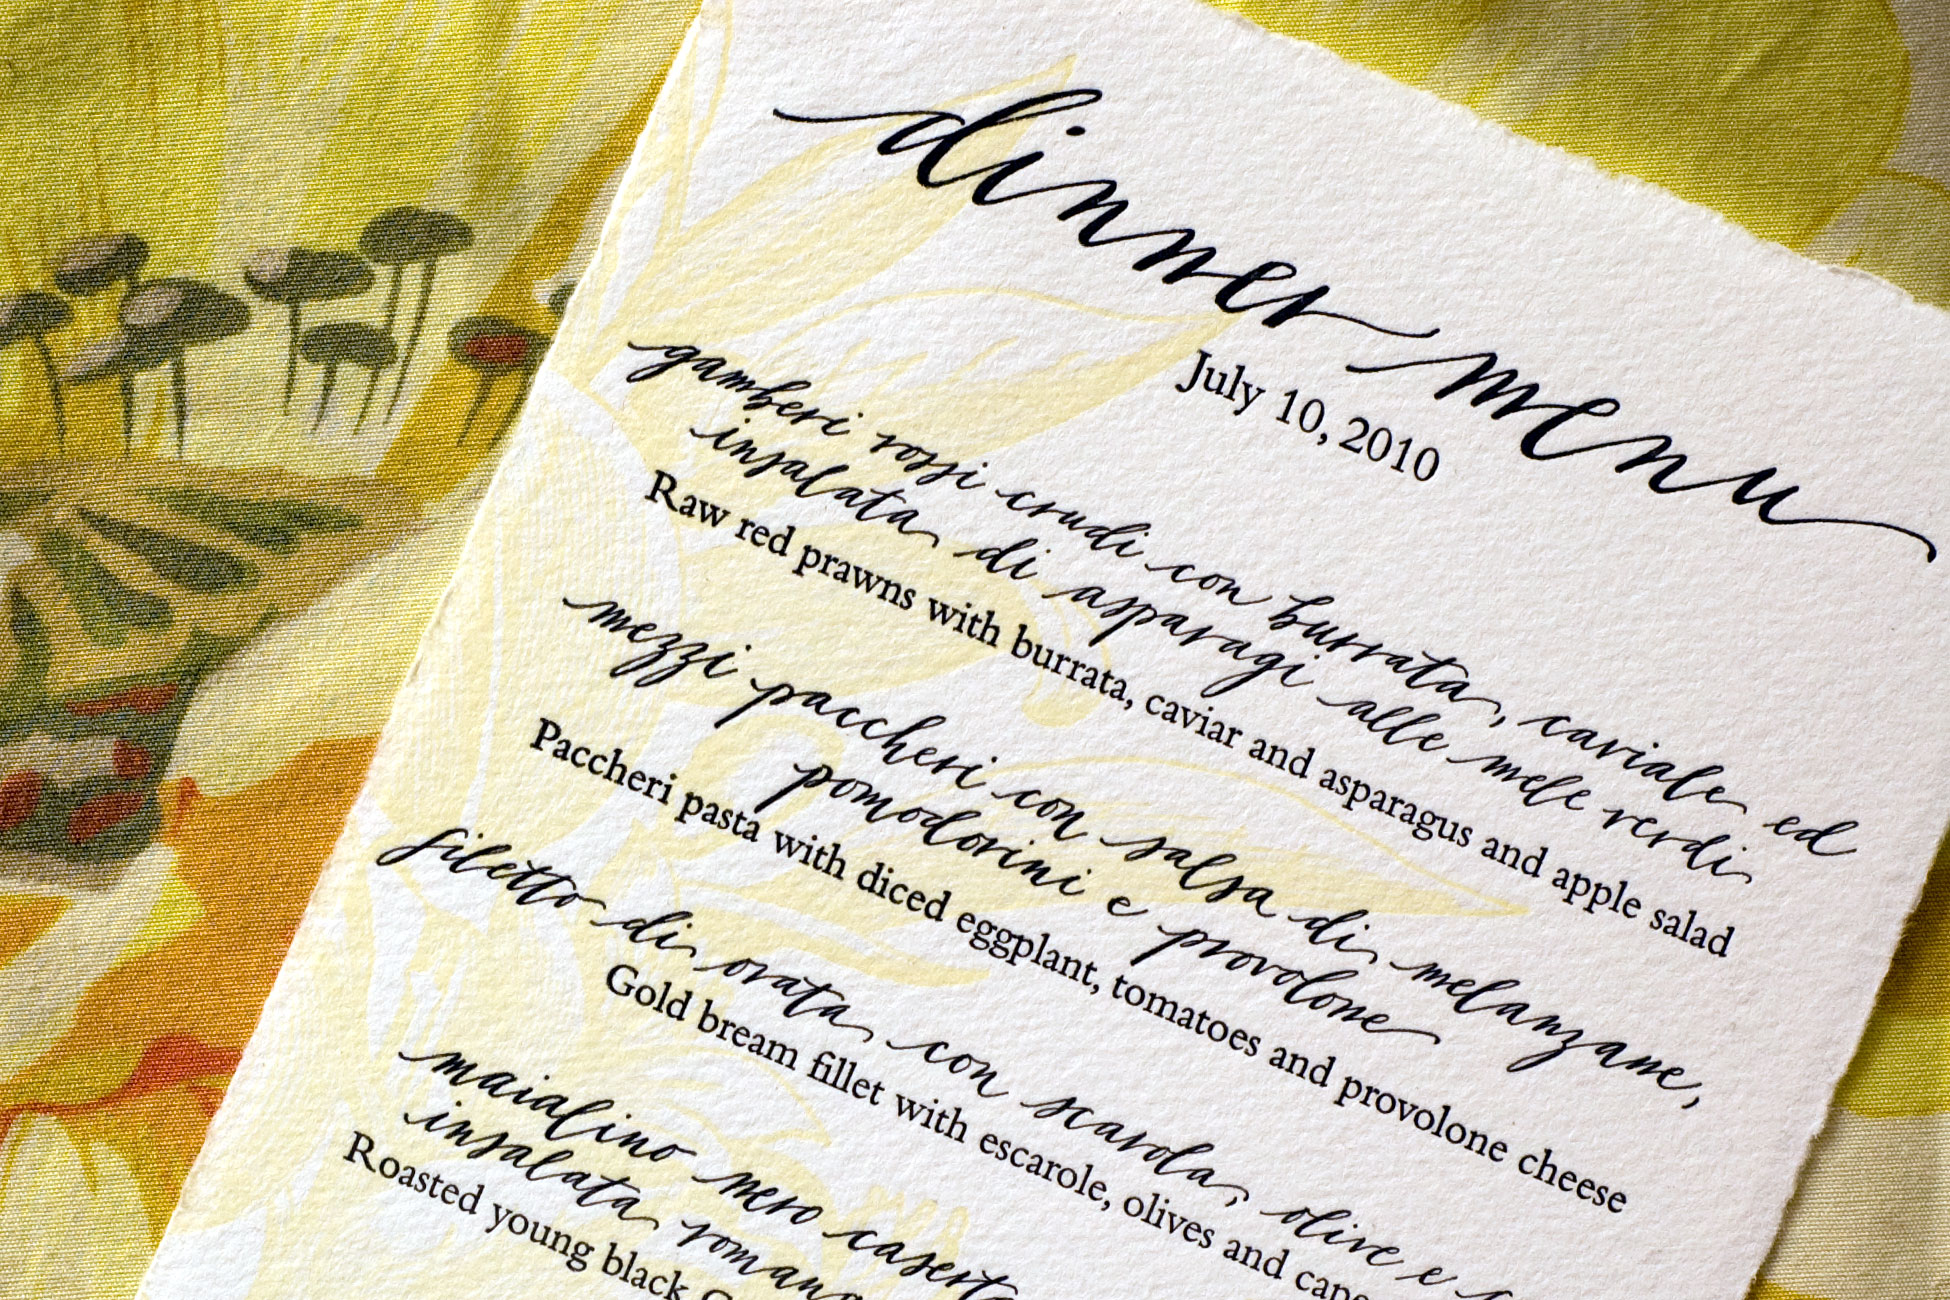 dinner menu
July 10, 2010
gamberi rossi crudi con burrata, caviale ed
insalata di asparagi alle mele verdi
Raw red prawns with burrata, caviar and asparagus and apple salad
mezzi paccheri con salsa di melanzane,
pomodorini e provolone
Paccheri pasta with diced eggplant, tomatoes and provolone cheese
filetto di orata con scarola, olive e
Gold bream fillet with escarole, olives and cape
maialino nero casert
insalata romana
Roasted young black